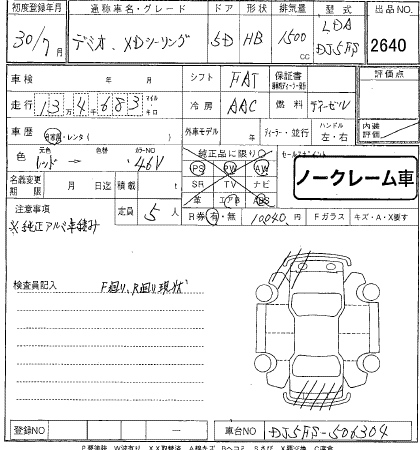 初度登録年月 通称車名・グレード ドア 形状 排気量 型式 出品NO.
30/7月 デミオ、XDツーリング 5D HB 1500cc LDA DJ5FS 2640
車検 年 月 シフト FAT 保証書 評価点
走行 13万4千683 マイル キロ 冷房 AAC 燃料 ディーゼル 内装評価
車歴 自家用・レンタ( ) 外車モデル 年 ディーラー・並行 ハンドル 左・右
色 元色 レッド → 色替 カラーNO 46V 純正品に限り○ セールスポイント
PS PW AW
名義変更期限 月 日迄 積載 t SR TV ナビ ノークレーム車
注意事項 定員 5人 革 エアB ABS
※純正アルミ車積み R券 有・無 10,040円 Fガラス キズ・A・X要す
検査員記入 F廻り、R廻り現状
登録NO 車台NO DJ5FS-506304